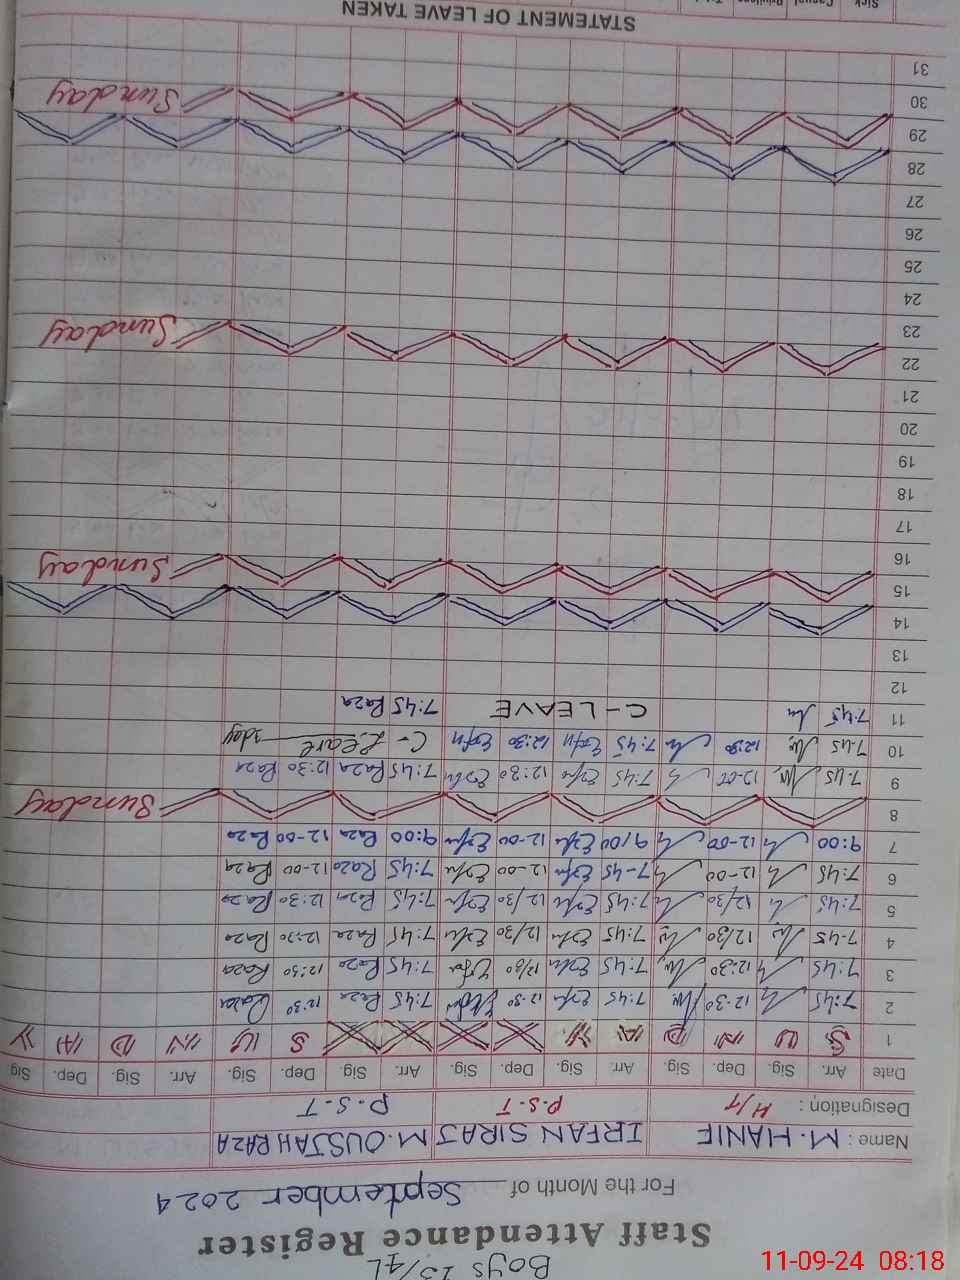 Boys 15/4L
Staff Attendance Register
For the Month of September 2024
Name : M. HANIF IRFAN SIRAJ M. OUSJAH RAZA
Designation : H/T P.S.T P.S.T
Date Arr. Sig. Dep. Sig. Arr. Sig. Dep. Sig. Arr. Sig. Dep. Sig. Arr. Sig. Dep. Sig.
1 S U N D A Y S U N D A Y
2 7:45 12:30 7:45 12:30 7:45 Raza 12:30 Raza
3 7:45 12:30 7:45 12/30 7:45 Raza 12:30 Raza
4 7:45 12/30 7:45 12/30 7:45 Raza 12:30 Raza
5 7:45 12/30 7:45 12/30 7:45 Raza 12:30 Raza
6 7:45 12-00 7-45 12-00 7:45 Raza 12-00 Raza
7 9:00 12-00 9/00 12-00 9:00 Raza 12-00 Raza
8 Sunday
9 7:45 12-00 7:45 12:30 7:45 Raza 12:30 Raza
10 7:45 12:30 7:45 12:30 C-Leave 1day
11 7:45 C-LEAVE 7:45 Raza
12
13
14
15 Sunday
16
17
18
19
20
21
22 Sunday
23
24
25
26
27
28
29 Sunday
30
31
STATEMENT OF LEAVE TAKEN
Sick Casual Privilege
11-09-24 08:18